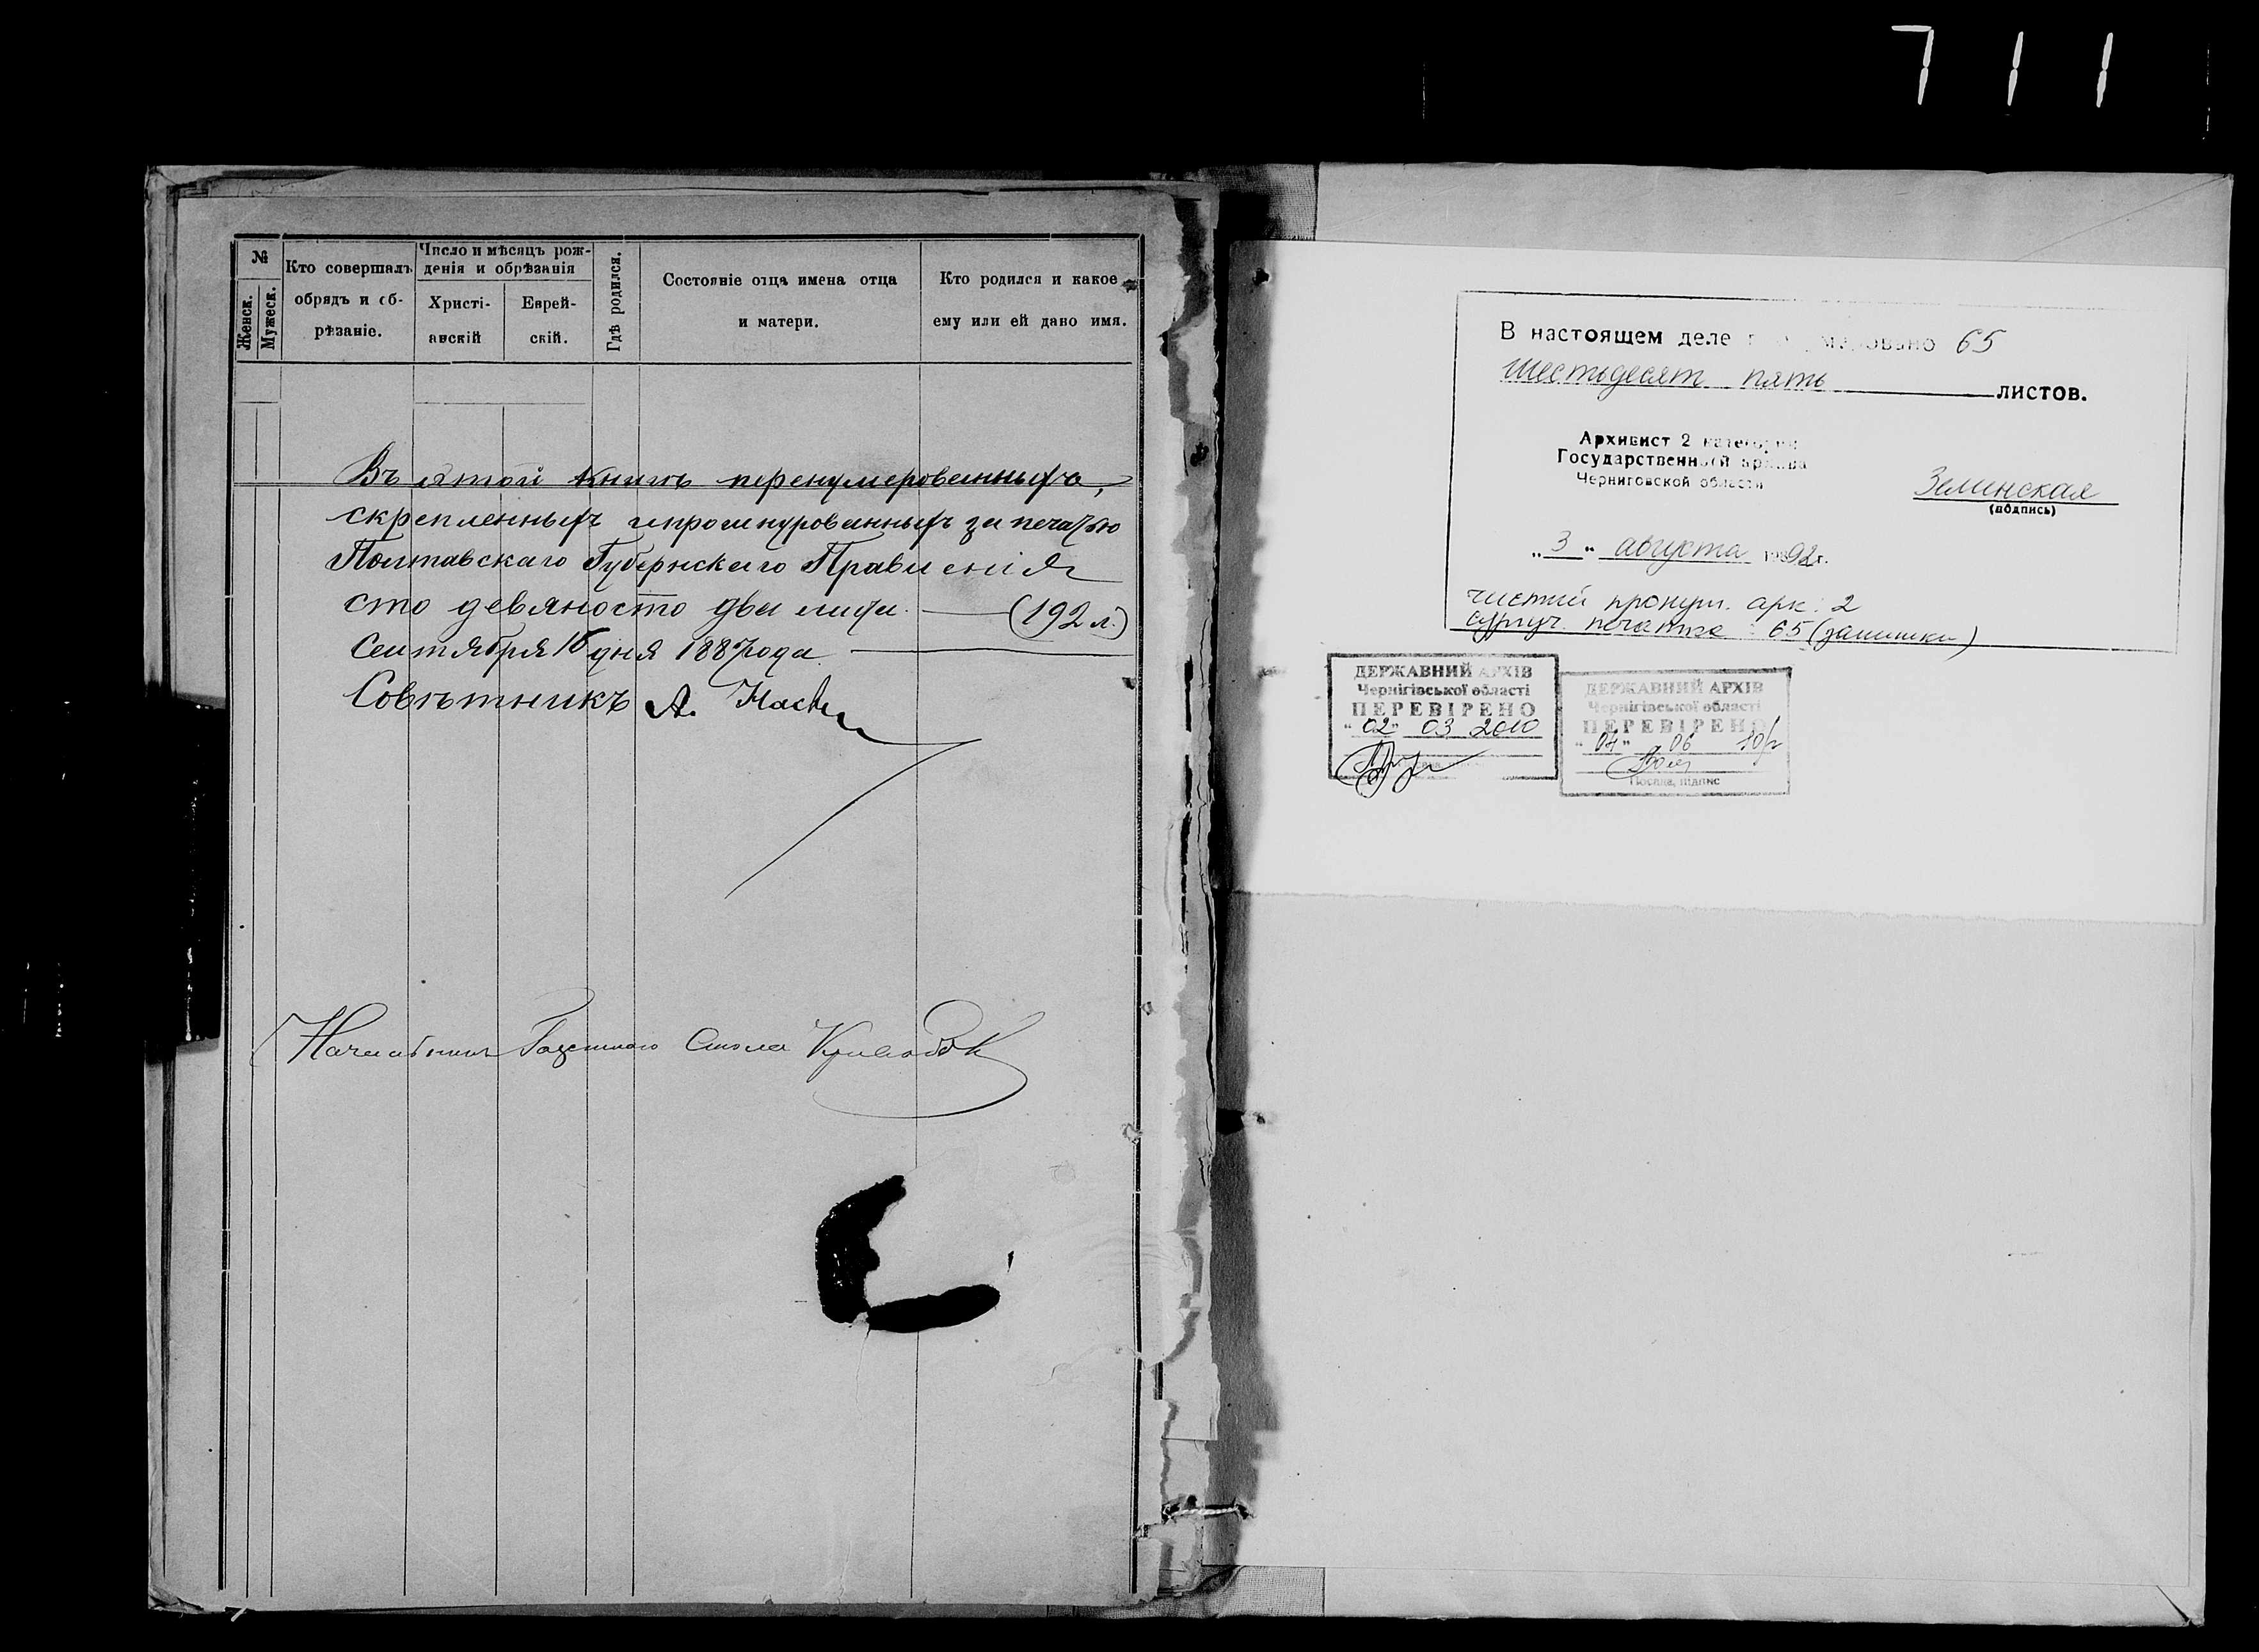 711
№
Женск.
Мужеск.
Кто совершалъ
обрядъ и об-
рѣзаніе.
Число и мѣсяцъ рож-
денія и обрѣзанія
Христі-
анскій
Еврей-
скій.
Гдѣ родился.
Состояніе отца имена отца
и матери.
Кто родился и какое
ему или ей дано имя.
Въ этой книгѣ перенумерованныхъ,
скрепленныхъ и прошнурованныхъ за печатью
Полтавскаго Губернскаго Правленія
сто девяносто два листа (192 л.)
Сентября 16 дня 1887 года.
Совѣтникъ А.
Начальникъ Газетнаго Стола
В настоящем деле 65
шестьдесят пять листов.
Архивист 2 категории
Государственной архива
Черниговской области
Зелинская
(подпись)
„3“ августа 1992 г.
чистий пронум. арк. 2
сургуч. печатка : 65 (залишки)
ДЕРЖАВНИЙ АРХІВ
Чернігівської області
ПЕРЕВІРЕНО
"02" 03 2010
ДЕРЖАВНИЙ АРХІВ
Чернігівської області
ПЕРЕВІРЕНО
"04" 06
Посада, підпис